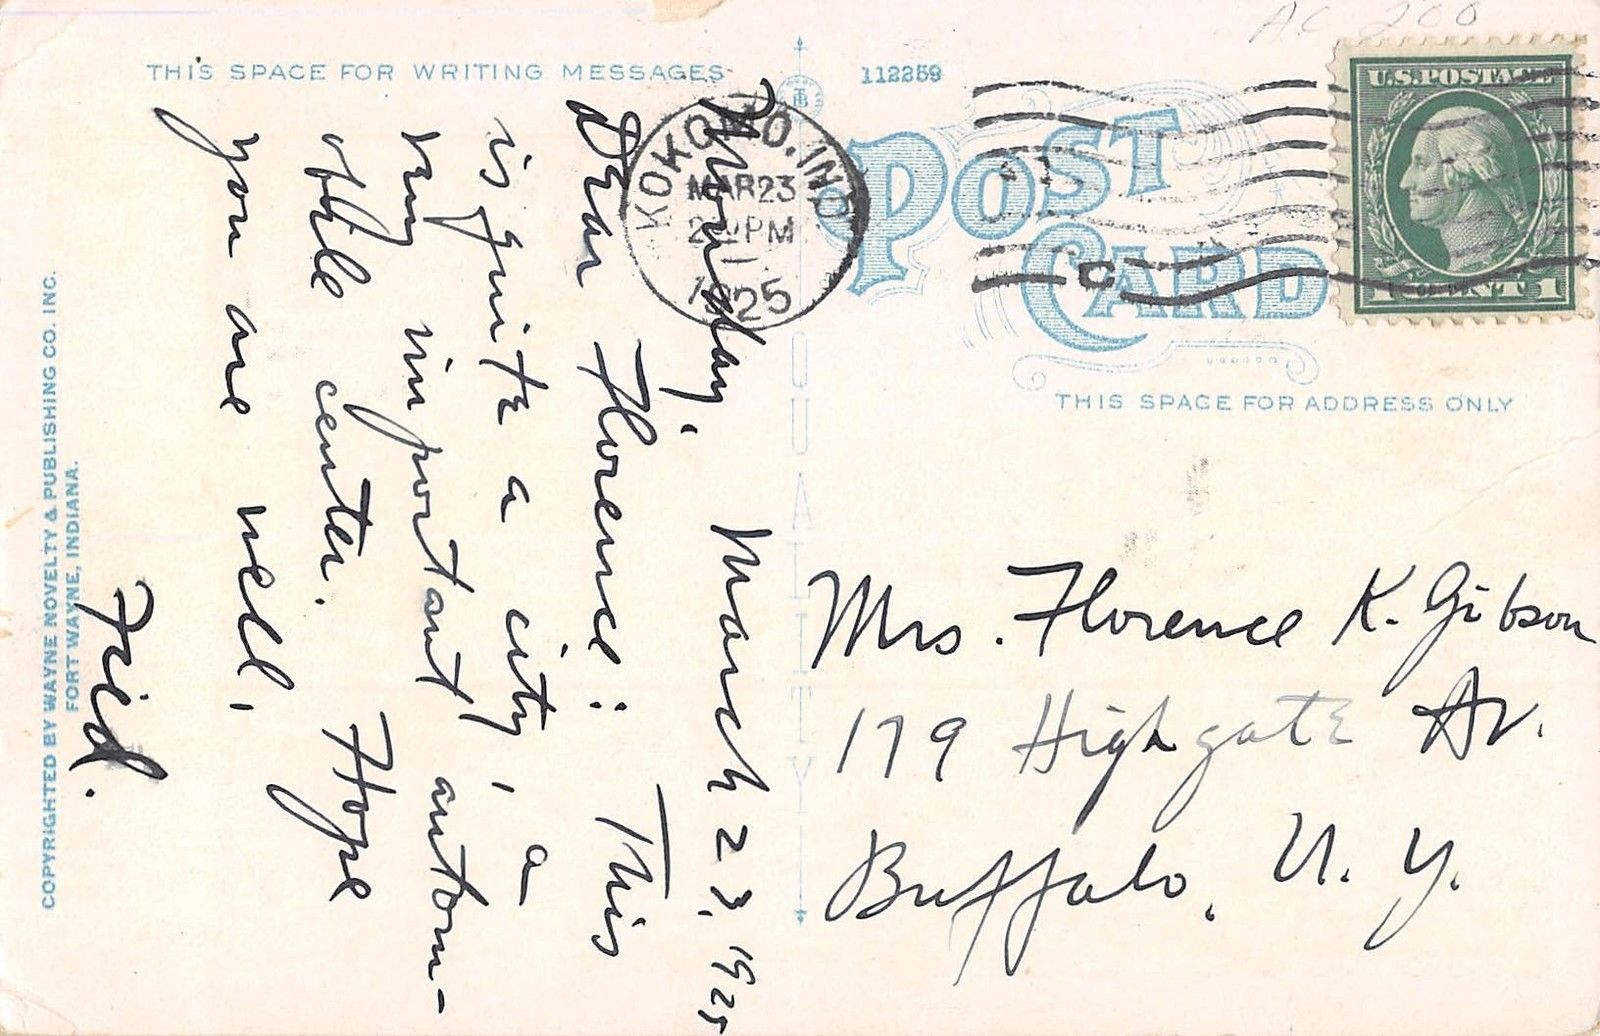 AC 200
THIS SPACE FOR WRITING MESSAGES
112259
POST
CARD
U.S. POSTAGE
1 CENT 1
KOKOMO, IND.
MAR 23
PM
1
1925
THIS SPACE FOR ADDRESS ONLY
QUALITY
Monday,  March 23, 1925
Dear Florence: This
is quite a city, a
very important autom-
obile center. Hope
you are well,
Fried.
Mrs. Florence K. Gibson
179 Highgate Av.
Buffalo, N. Y.
COPYRIGHTED BY WAYNE NOVELTY & PUBLISHING CO. INC.
FORT WAYNE, INDIANA.